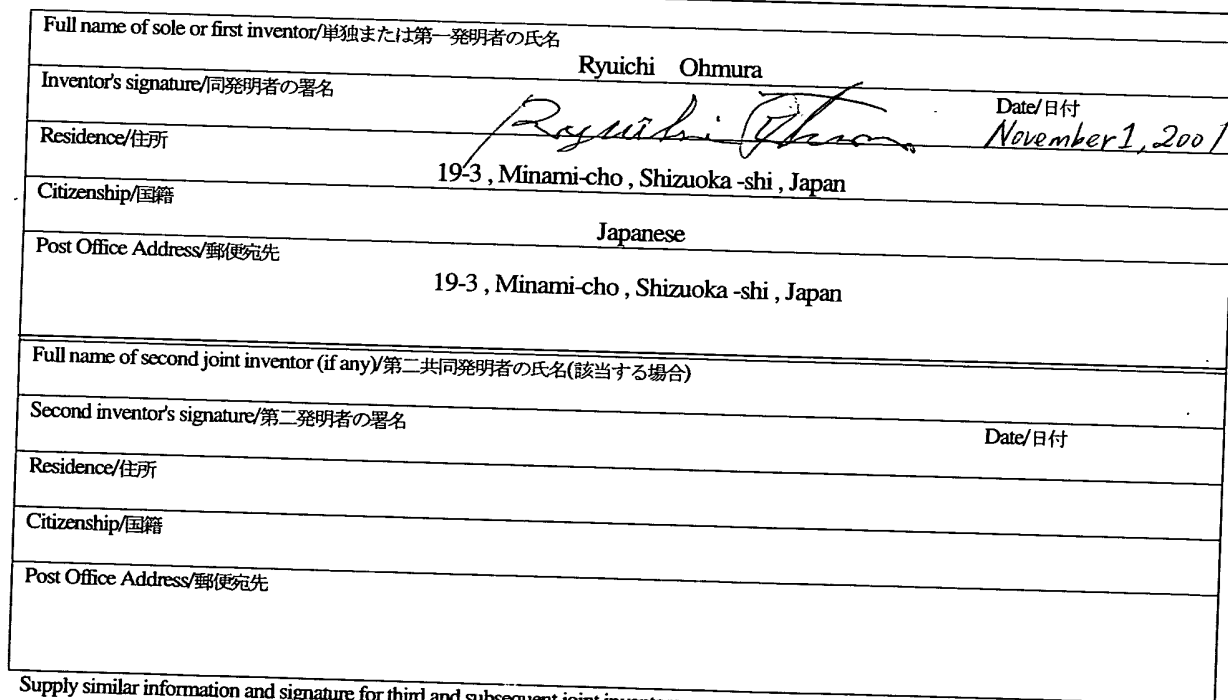 Full name of sole or first inventor/単独または第一発明者の氏名
Ryuichi Ohmura
Inventor's signature/同発明者の署名
Date/日付
Ryuichi Ohmura
November 1, 2001
Residence/住所
19-3 , Minami-cho , Shizuoka -shi , Japan
Citizenship/国籍
Japanese
Post Office Address/郵便宛先
19-3 , Minami-cho , Shizuoka -shi , Japan
Full name of second joint inventor (if any)/第二共同発明者の氏名(該当する場合)
Second inventor's signature/第二発明者の署名
Date/日付
Residence/住所
Citizenship/国籍
Post Office Address/郵便宛先
Supply similar information and signature for third and subsequent joint